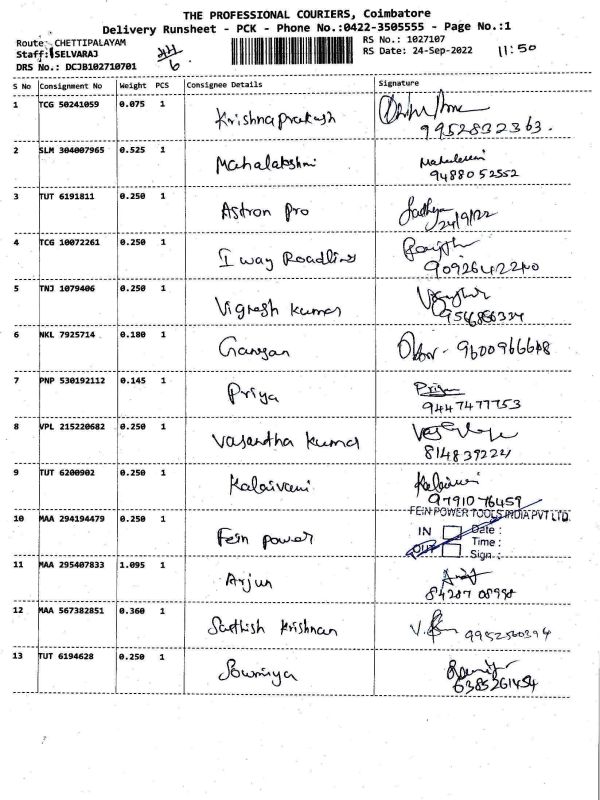 THE PROFESSIONAL COURIERS, Coimbatore
Delivery Runsheet - PCK - Phone No.:0422-3505555 - Page No.:1
Route: CHETTIPALAYAM RS No.: 1027107
Staff: SELVARAJ RS Date: 24-Sep-2022 11:50
DRS No.: DCJB102710701 6
S No Consignment No Weight PCS Consignee Details Signature
1 TCG 50241059 0.075 1 Krishna prakash
9952832363.
2 SLM 304007965 0.525 1 Mahalakshmi
9488052552
3 TUT 6191811 0.250 1 Astron pro
24/9/22
4 TCG 10072261 0.250 1 I way Roadlines
9092642240
5 TNJ 1079406 0.250 1 Vignesh kumar
6 NKL 7925714 0.180 1 Ganesan
7 PNP 530192112 0.145 1 Priya Priya
9447477753
8 VPL 215220682 0.250 1 vasantha kumar
814839224
9 TUT 6200902 0.250 1 Kalaivani
9791076459
FEIN POWER TOOLS INDIA PVT LTD.
10 MAA 294194479 0.250 1 Fein power IN Date :
OUT Time :
Sign. :
11 MAA 295407833 1.095 1 Arjun
84287 08998
12 MAA 567382851 0.360 1 Sathish Krishnan 9952560394
13 TUT 6194628 0.250 1 Sowmiya
6385261454